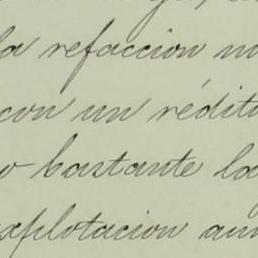 la refaccion no
con un rédit
o bastante la
explotacion aun